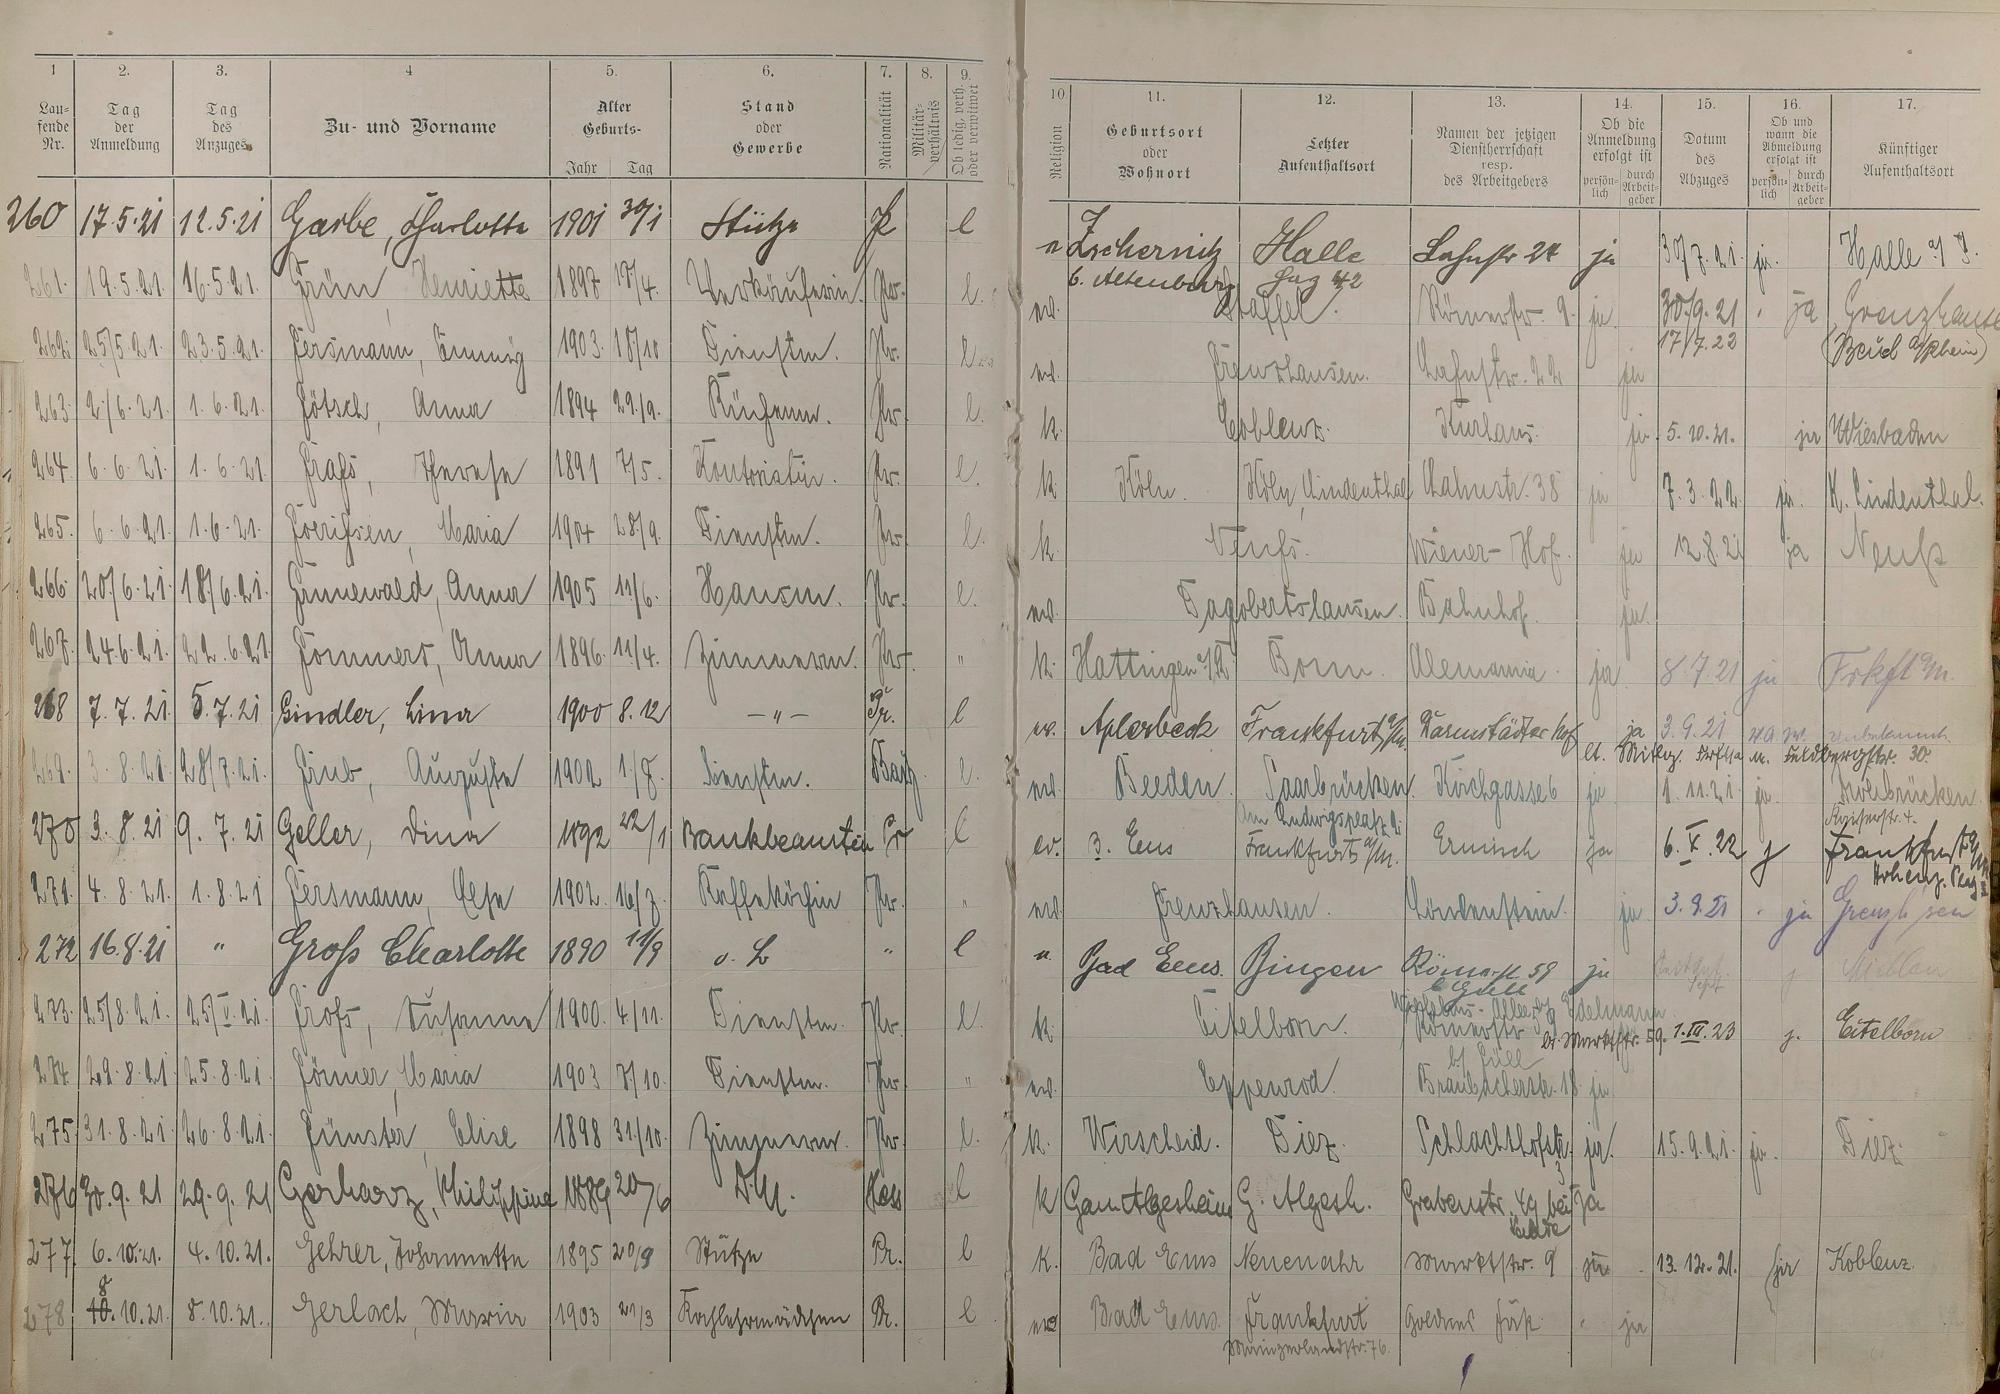 1 2. 3. 4 5. 6. 7. 8. 9.
Lau- fende Nr. Tag der Anmeldung Tag des Anzuges Zu- und Vorname Alter Geburts- Jahr Tag Stand oder Gewerbe Nationalität Militär- verhältnis Ob ledig, verh. oder verwitwet
10 11. 12. 13. 14. 15. 16. 17.
Religion Geburtsort oder Wohnort Letzter Aufenthaltsort Namen der jetzigen Dienstherrschaft resp. des Arbeitgebers Ob die Anmeldung erfolgt ist persön- lich durch Arbeit- geber Datum des Abzuges Ob und wann die Abmeldung erfolgt ist persön- lich durch Arbeit- geber Künftiger Aufenthaltsort
260 17.5.21 12.5.21 Garbe, Charlotte 1901 30/1 Stütze l
Zschernitz Halle Lahnstr 24 ja 30/7.21. ja. Halle a/S.
b. Altenburg Hag 42
261. 19.5.21. 16.5.21. Grün, Henriette 1897 Verkäuferin. Pr. l.
Staffel. Römerstr. 9. ja. 30/9.21 ja
262. 25/5.21. 23.5.21. Gersmann, Emmy 1903. 18/10 Dienstm. Pr. l.
17/7.23
Grenzhausen. Lahnstr. 22 ja
263. 2/6.21. 1.6.21. Götsch, Anna 1894 29/9. Küchenm. Pr. l.
k. Coblenz. Kurhaus. ja. 5.10.21. ja Wiesbaden
264. 6.6.21. 1.6.21. Therese 1891 7/5. Kontoristin. Pr. l.
k. Köln. Köln, Lindenthal Lahnstr. 38 ja 7.3.22. ja. K. Lindenthal.
265. 6.6.21. 1.6.21. Maria 1904 28/9. Dienstm. Pr. l.
k. Neuss. Wiener-Hof. ja 12.8.21 ja Neuß
266. 20/6.21. 18/6.21. Grünewald, Anna 1905 11/6. Hausm. Pr. l.
Dagobertshausen. Bahnhof. ja.
267. 24.6.21. 22.6.21 Gommers, Anna 1896. 11/4. Zimmerm. Pr. "
k. Hattingen a/R. Bonn. Alemannia. ja. 8.7.21 ja Frkft a/M.
268 7.7.21. 5.7.21 Gindler, Lina 1900 8.12 —"— Pr. l
ev. Aplerbeck Frankfurt a/M. Darmstädter Hof ja 3.9.21 unbekannt.
30.
269. 3.8.21. 28/7.21. Grub, Auguste 1902 1/8. Dienstm. l.
Beeden. Saarbrücken. Kirchgasse 6 ja. 1.11.21. ja.
Am Ludwigsplatz
270 3.8.21 9.7.21 Geller, Dina 1892 22/1 Bankbeamtin Pr l
ev. B. Ems Frankfurt a/M. Ermisch ja 6.X.22 j Frankfurt a/M
271. 4.8.21. 1.8.21 Gersmann, Else 1902. Kaffeköchin Pr. "
Grenzhausen. Löwenstein. ja. 3.9.21 ja
272 16.8.21 " Groß Charlotte 1890 11/9 o. B. " l
Bad Ems. Bingen Römerst. 59 ja
273. 25/8.21. 25/V.21. Groß, Susanna 1900. 4/11. Dienstm. Pr. l.
k. Eitelborn. Römerstr. Edelmann Marktstr. 59. 1.III.23 j. Eitelborn
274 29.8.21 25.8.21. Maria 1903 7/10. Dienstm. Pr. "
Eppenrod. Braubacherstr. 18 ja
275. 31.8.21. 26.8.21. Günster, Elise 1898 31/10. Zimmerm. Pr. l.
k. Wirscheid. Diez. Schlachthofstr. 3 ja. 15.9.21. ja. Diez.
276 30.9.21 29.9.21 Gerharz, Philippine 1889 20/6 D.M. Hess l
k GauAlgesheim G. Algesh. Grabenstr. 49 bei ja
277. 6.10.21. 4.10.21. Gehrer, Johannetta 1895 20/9 Stütze Pr. l
k. Bad Ems Neuenahr Marktstr. 9 ja 13.12.21. ja Koblenz.
278 8 10.10.21. 8.10.21. Gerlach, Maria 1903 21/3 Kochlehrmädchen Pr. l
Bad Ems. Frankfurt ja
Mainzerlandstr. 76.